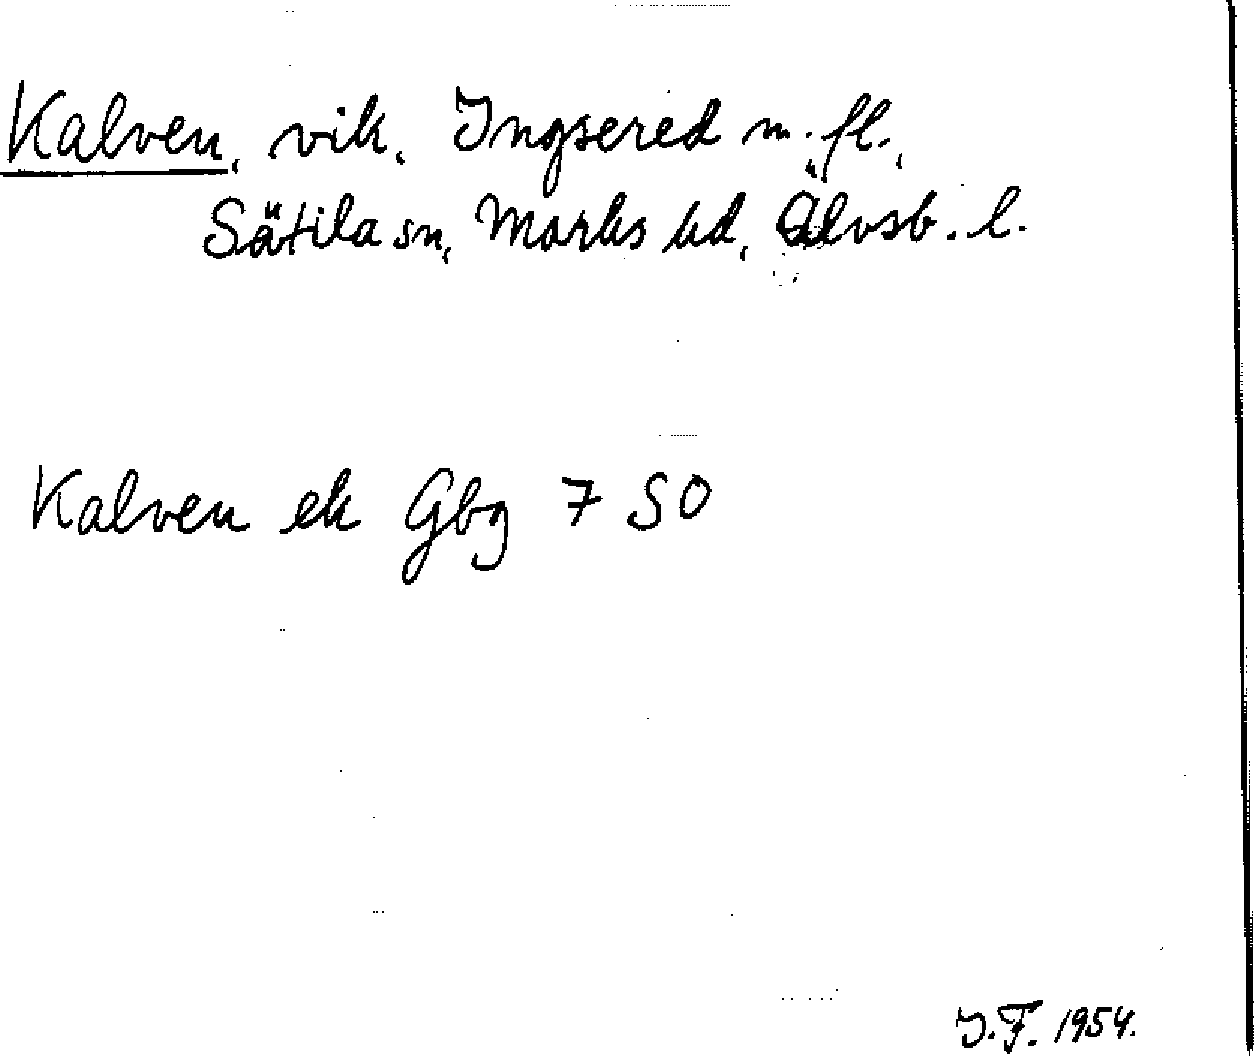 Kalven, vik, Ingsered m. fl.,
Sätila sn, Marks hd, Älvsb. l.
Kalven ek Gbg 7 SO
I.F. 1954.